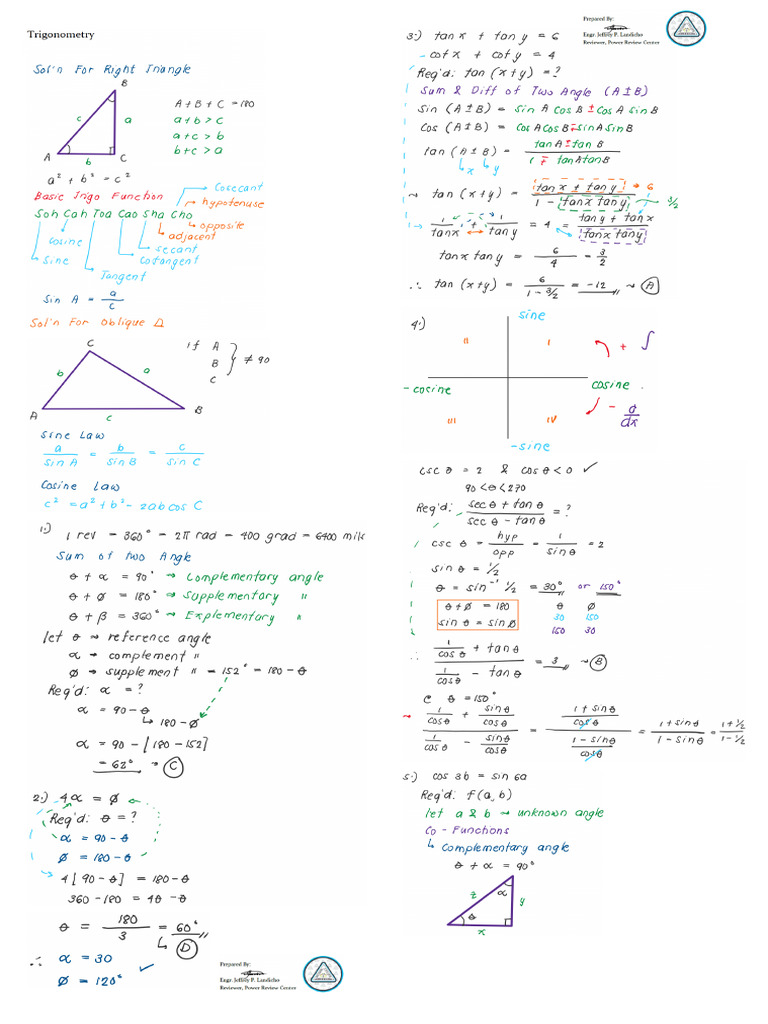 Trigonometry
Sol'n For Right Triangle
B
c a
A b C
A + B + C = 180
a + b > c
a + c > b
b + c > a
a² + b² = c²
Basic Trigo Function
Cosecant
hypotenuse
Soh Cah Toa Cao Sha Cho
opposite
adjacent
secant
Cotangent
Tangent
Cosine
Sine
sin A = a/c
Sol'n For Oblique Δ
C
b a
A c B
If A
B
C
≠ 90
Sine Law
a/sin A = b/sin B = c/sin C
Cosine Law
c² = a² + b² - 2ab cos C
1.)
1 rev = 360° = 2π rad = 400 grad = 6400 mils
Sum of two Angle
θ + α = 90° → Complementary angle
θ + φ = 180° → Supplementary "
θ + β = 360° → Explementary "
let θ → reference angle
α → complement "
φ → supplement " = 152° = 180 - θ
Req'd: α = ?
α = 90 - θ
↳ 180 - φ
α = 90 - [180 - 152]
= 62° → C
2.) 4α = φ
Req'd: θ = ?
α = 90 - θ
φ = 180 - θ
4[90 - θ] = 180 - θ
360 - 180 = 4θ - θ
θ = 180/3 = 60°
↳ D
∴ α = 30
φ = 120° ✓
Prepared By:
Engr. Jeffrey P. Landicho
Reviewer, Power Review Center
Prepared By:
Engr. Jeffrey P. Landicho
Reviewer, Power Review Center
3.) tan x + tan y = 6
cot x + cot y = 4
Req'd: tan (x + y) = ?
Sum & Diff of Two Angle (A ± B)
Sin (A ± B) = Sin A Cos B ± Cos A Sin B
Cos (A ± B) = Cos A Cos B ∓ Sin A Sin B
tan (A ± B) = tan A ± tan B / 1 ∓ tan A tan B
x y
→ tan (x + y) = tan x + tan y / 1 - tan x tan y → 6
3/2
→ 1/tan x + 1/tan y = 4 = tan y + tan x / tan x tan y
tan x tan y = 6/4 = 3/2
∴ tan (x + y) = 6 / 1 - 3/2 = -12 → A
4.)
sine
II I
+ ∫
-cosine cosine
- d/dx
III IV
-sine
csc θ = 2 & cos θ < 0 ✓
90 < θ < 270
Req'd: sec θ + tan θ / sec θ - tan θ = ?
csc θ = hyp/opp = 1/sin θ = 2
sin θ = 1/2
θ = sin⁻¹ 1/2 = 30° or 150°
θ + φ = 180 θ φ
sin θ = sin φ 30 150
150 30
∴ 1/cos θ + tan θ / 1/cos θ - tan θ = 3 → B
@ θ = 150°
→ 1/cos θ + sin θ/cos θ / 1/cos θ - sin θ/cos θ = 1 + sin θ/cos θ / 1 - sin θ/cos θ = 1 + sin θ / 1 - sin θ = 1 + 1/2 / 1 - 1/2
5.) cos 3b = sin 6a
Req'd: f(a, b)
let a & b → unknown angle
Co - Functions
↳ Complementary angle
θ + α = 90°
z α y
θ
x